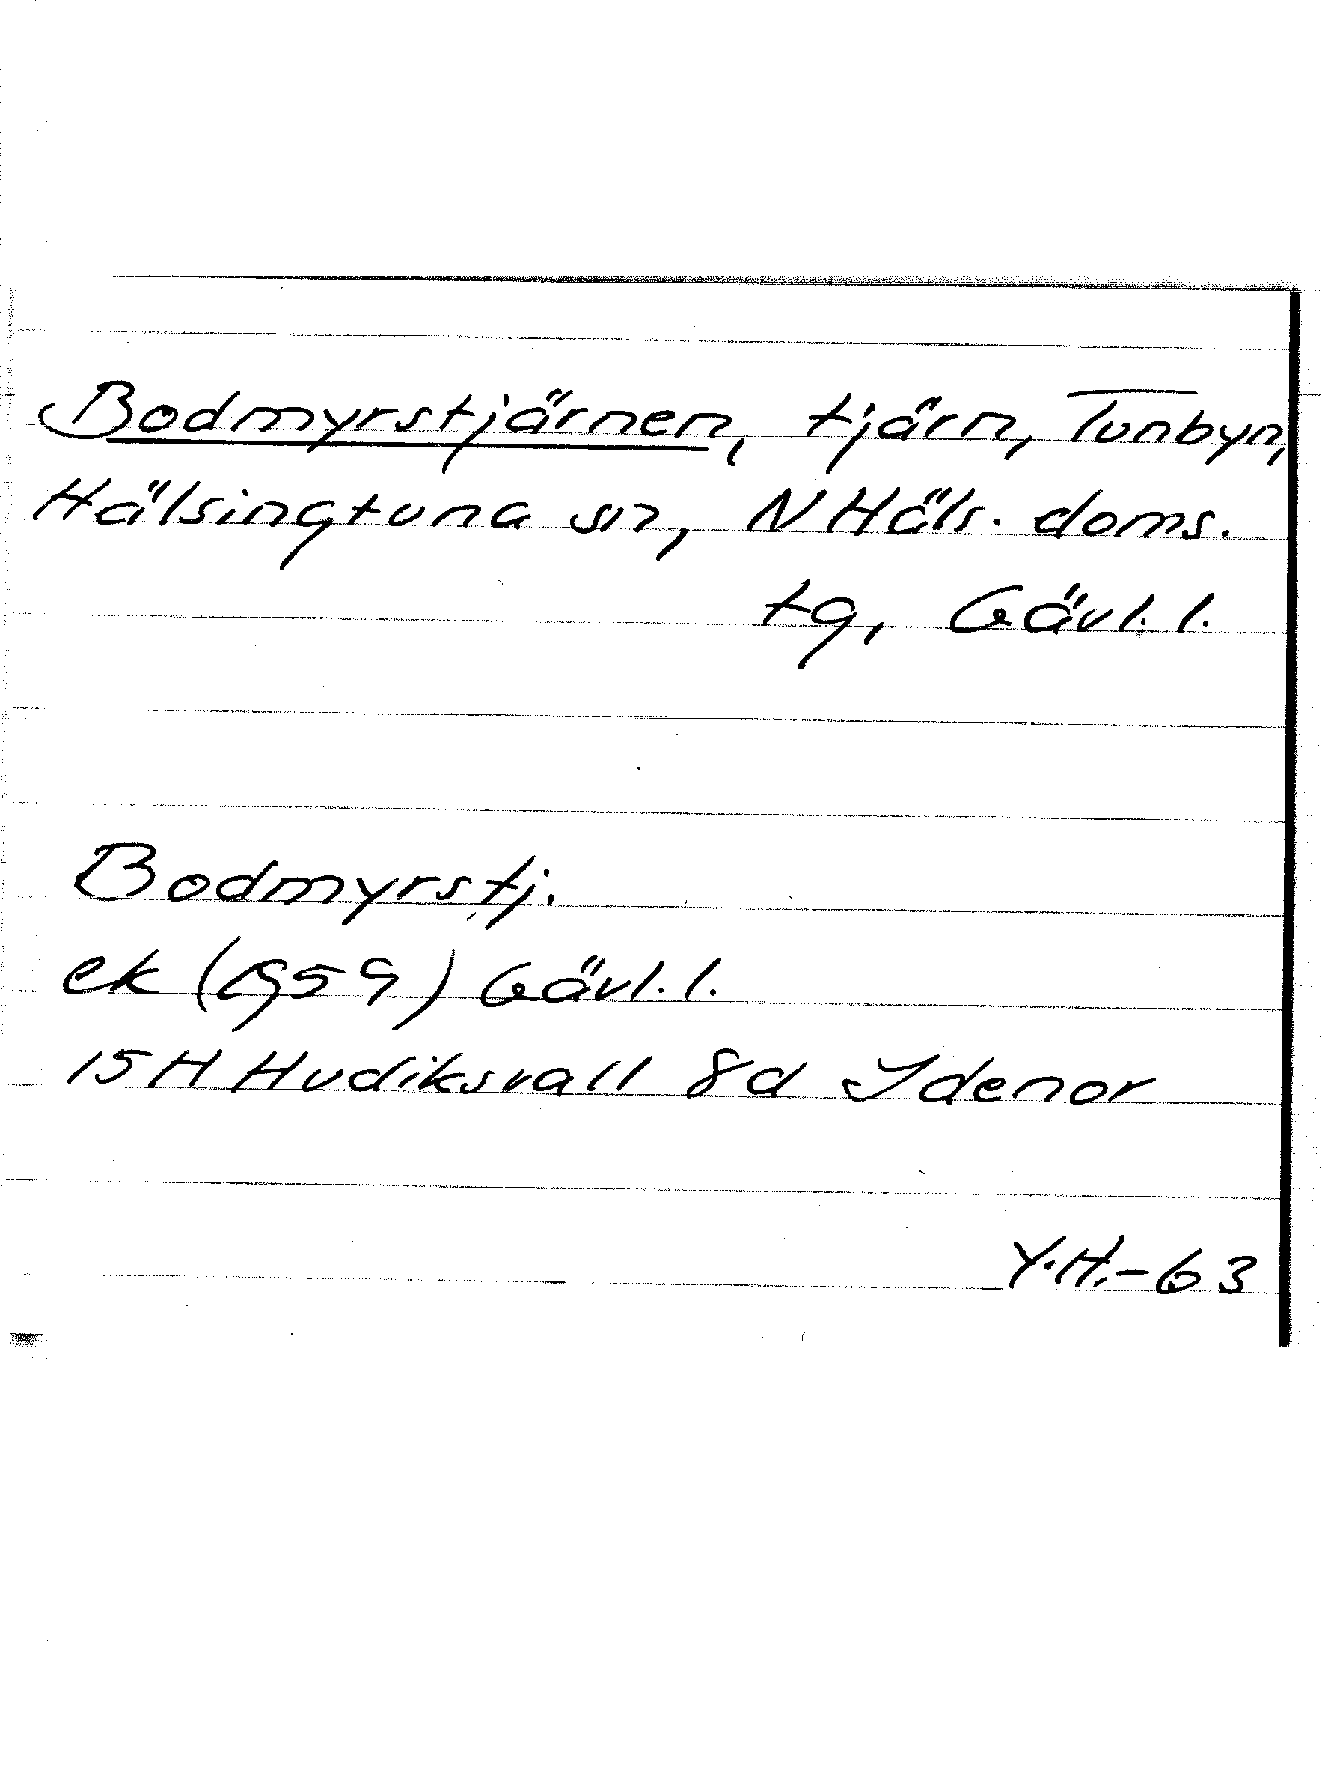 Bodmyrstjärnen, tjärn, Tunbyn,
Hälsingtuna sn, N Häls. doms.
tg, Gävl. l.
Bodmyrstj.
ek (1959) Gävl. l.
15H Hudiksvall 8d Idenor
Y.H.-63